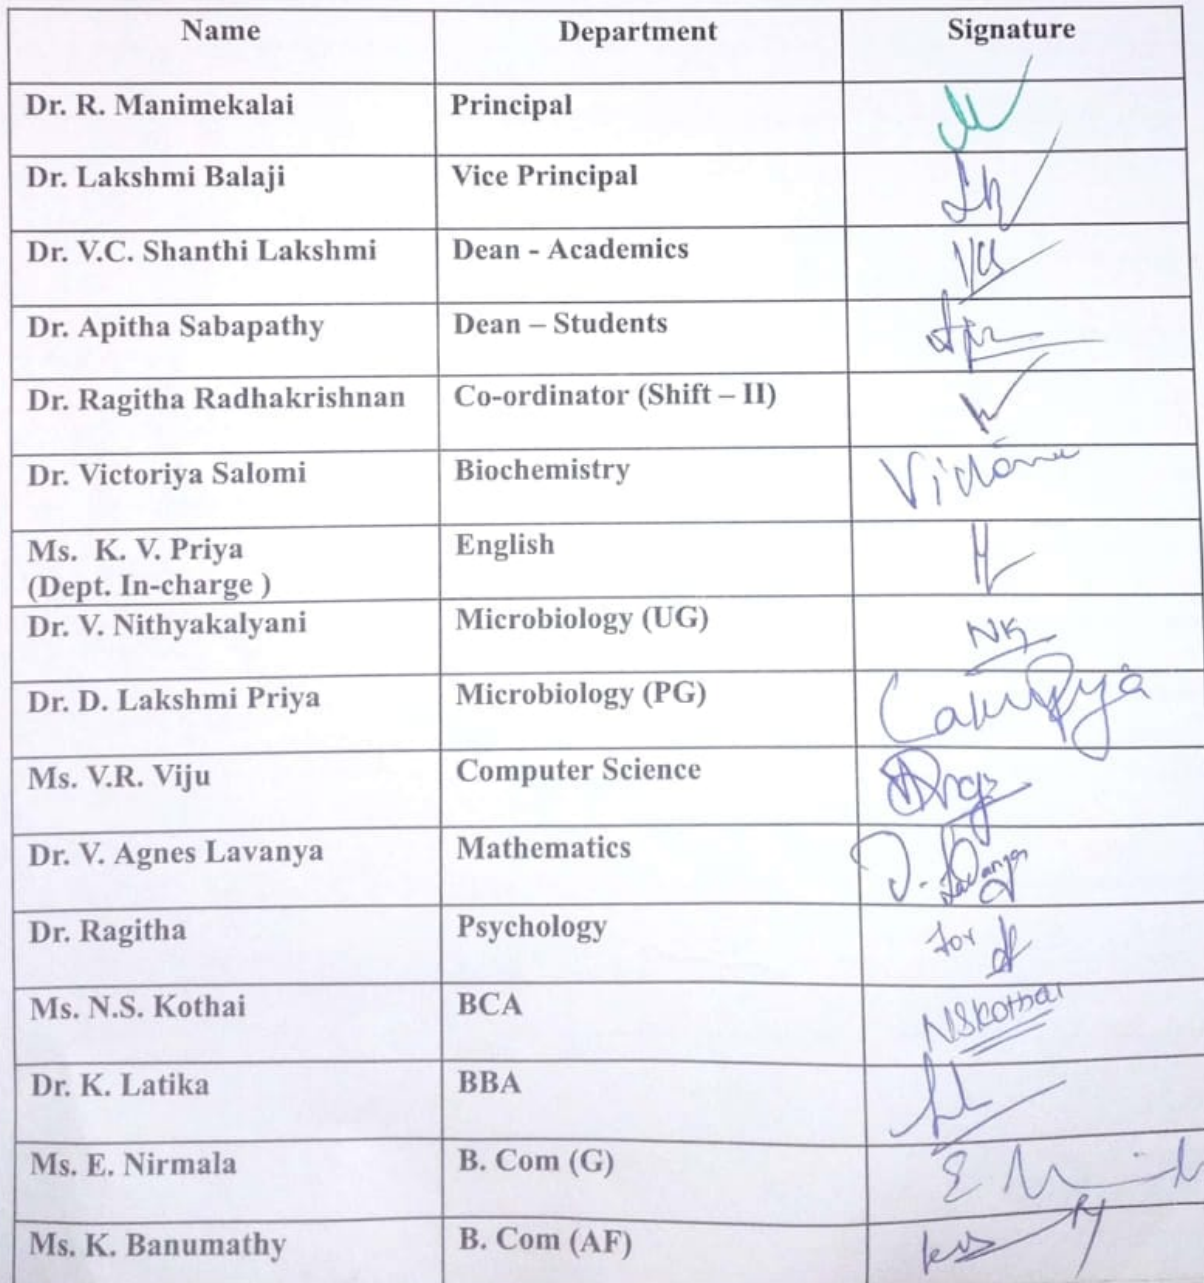 Name Department Signature
Dr. R. Manimekalai Principal
Dr. Lakshmi Balaji Vice Principal
Dr. V.C. Shanthi Lakshmi Dean - Academics
Dr. Apitha Sabapathy Dean – Students
Dr. Ragitha Radhakrishnan Co-ordinator (Shift – II)
Dr. Victoriya Salomi Biochemistry
Ms. K. V. Priya English
(Dept. In-charge )
Dr. V. Nithyakalyani Microbiology (UG)
Dr. D. Lakshmi Priya Microbiology (PG)
Ms. V.R. Viju Computer Science
Dr. V. Agnes Lavanya Mathematics
Dr. Ragitha Psychology for
Ms. N.S. Kothai BCA NSKothai
Dr. K. Latika BBA
Ms. E. Nirmala B. Com (G)
Ms. K. Banumathy B. Com (AF)